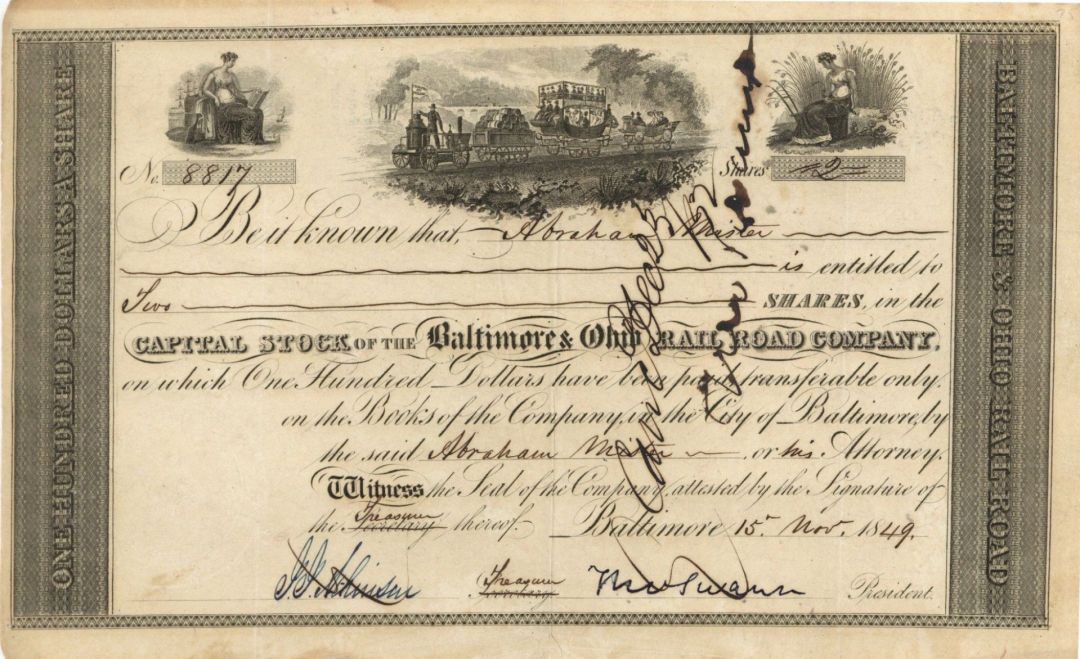 ONE HUNDRED DOLLARS A SHARE
No. 8817
Shares 2
Be it known that, Abraham Mister
is entitled to
Two SHARES, in the
CAPITAL STOCK OF THE Baltimore & Ohio RAIL ROAD COMPANY,
on which One Hundred Dollars have been paid transferable only,
on the Books of the Company, in the City of Baltimore, by
the said Abraham Mister or his Attorney.
Witness the Seal of the Company, attested by the Signature of
the Secretary Treasurer thereof. Baltimore 15th Nov. 1849.
Treasurer
Secretary
Tho Swann President.
BALTIMORE & OHIO RAIL ROAD